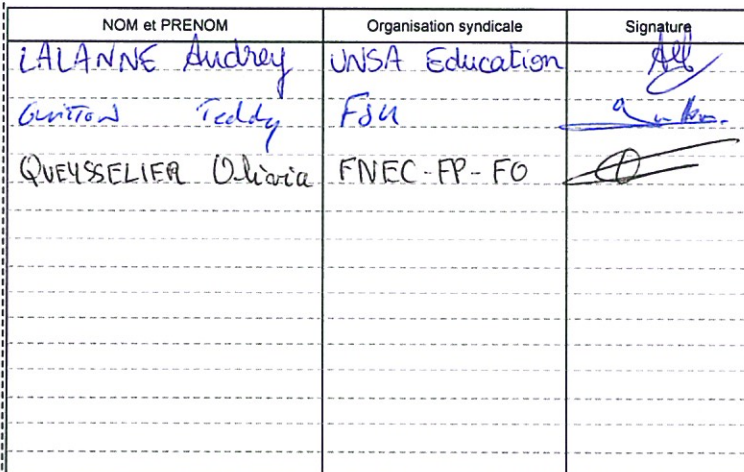 NOM et PRENOM Organisation syndicale Signature
LALANNE Audrey UNSA Education
GUITTON Teddy FSU
QUEYSSELIER Olivia FNEC-FP-FO